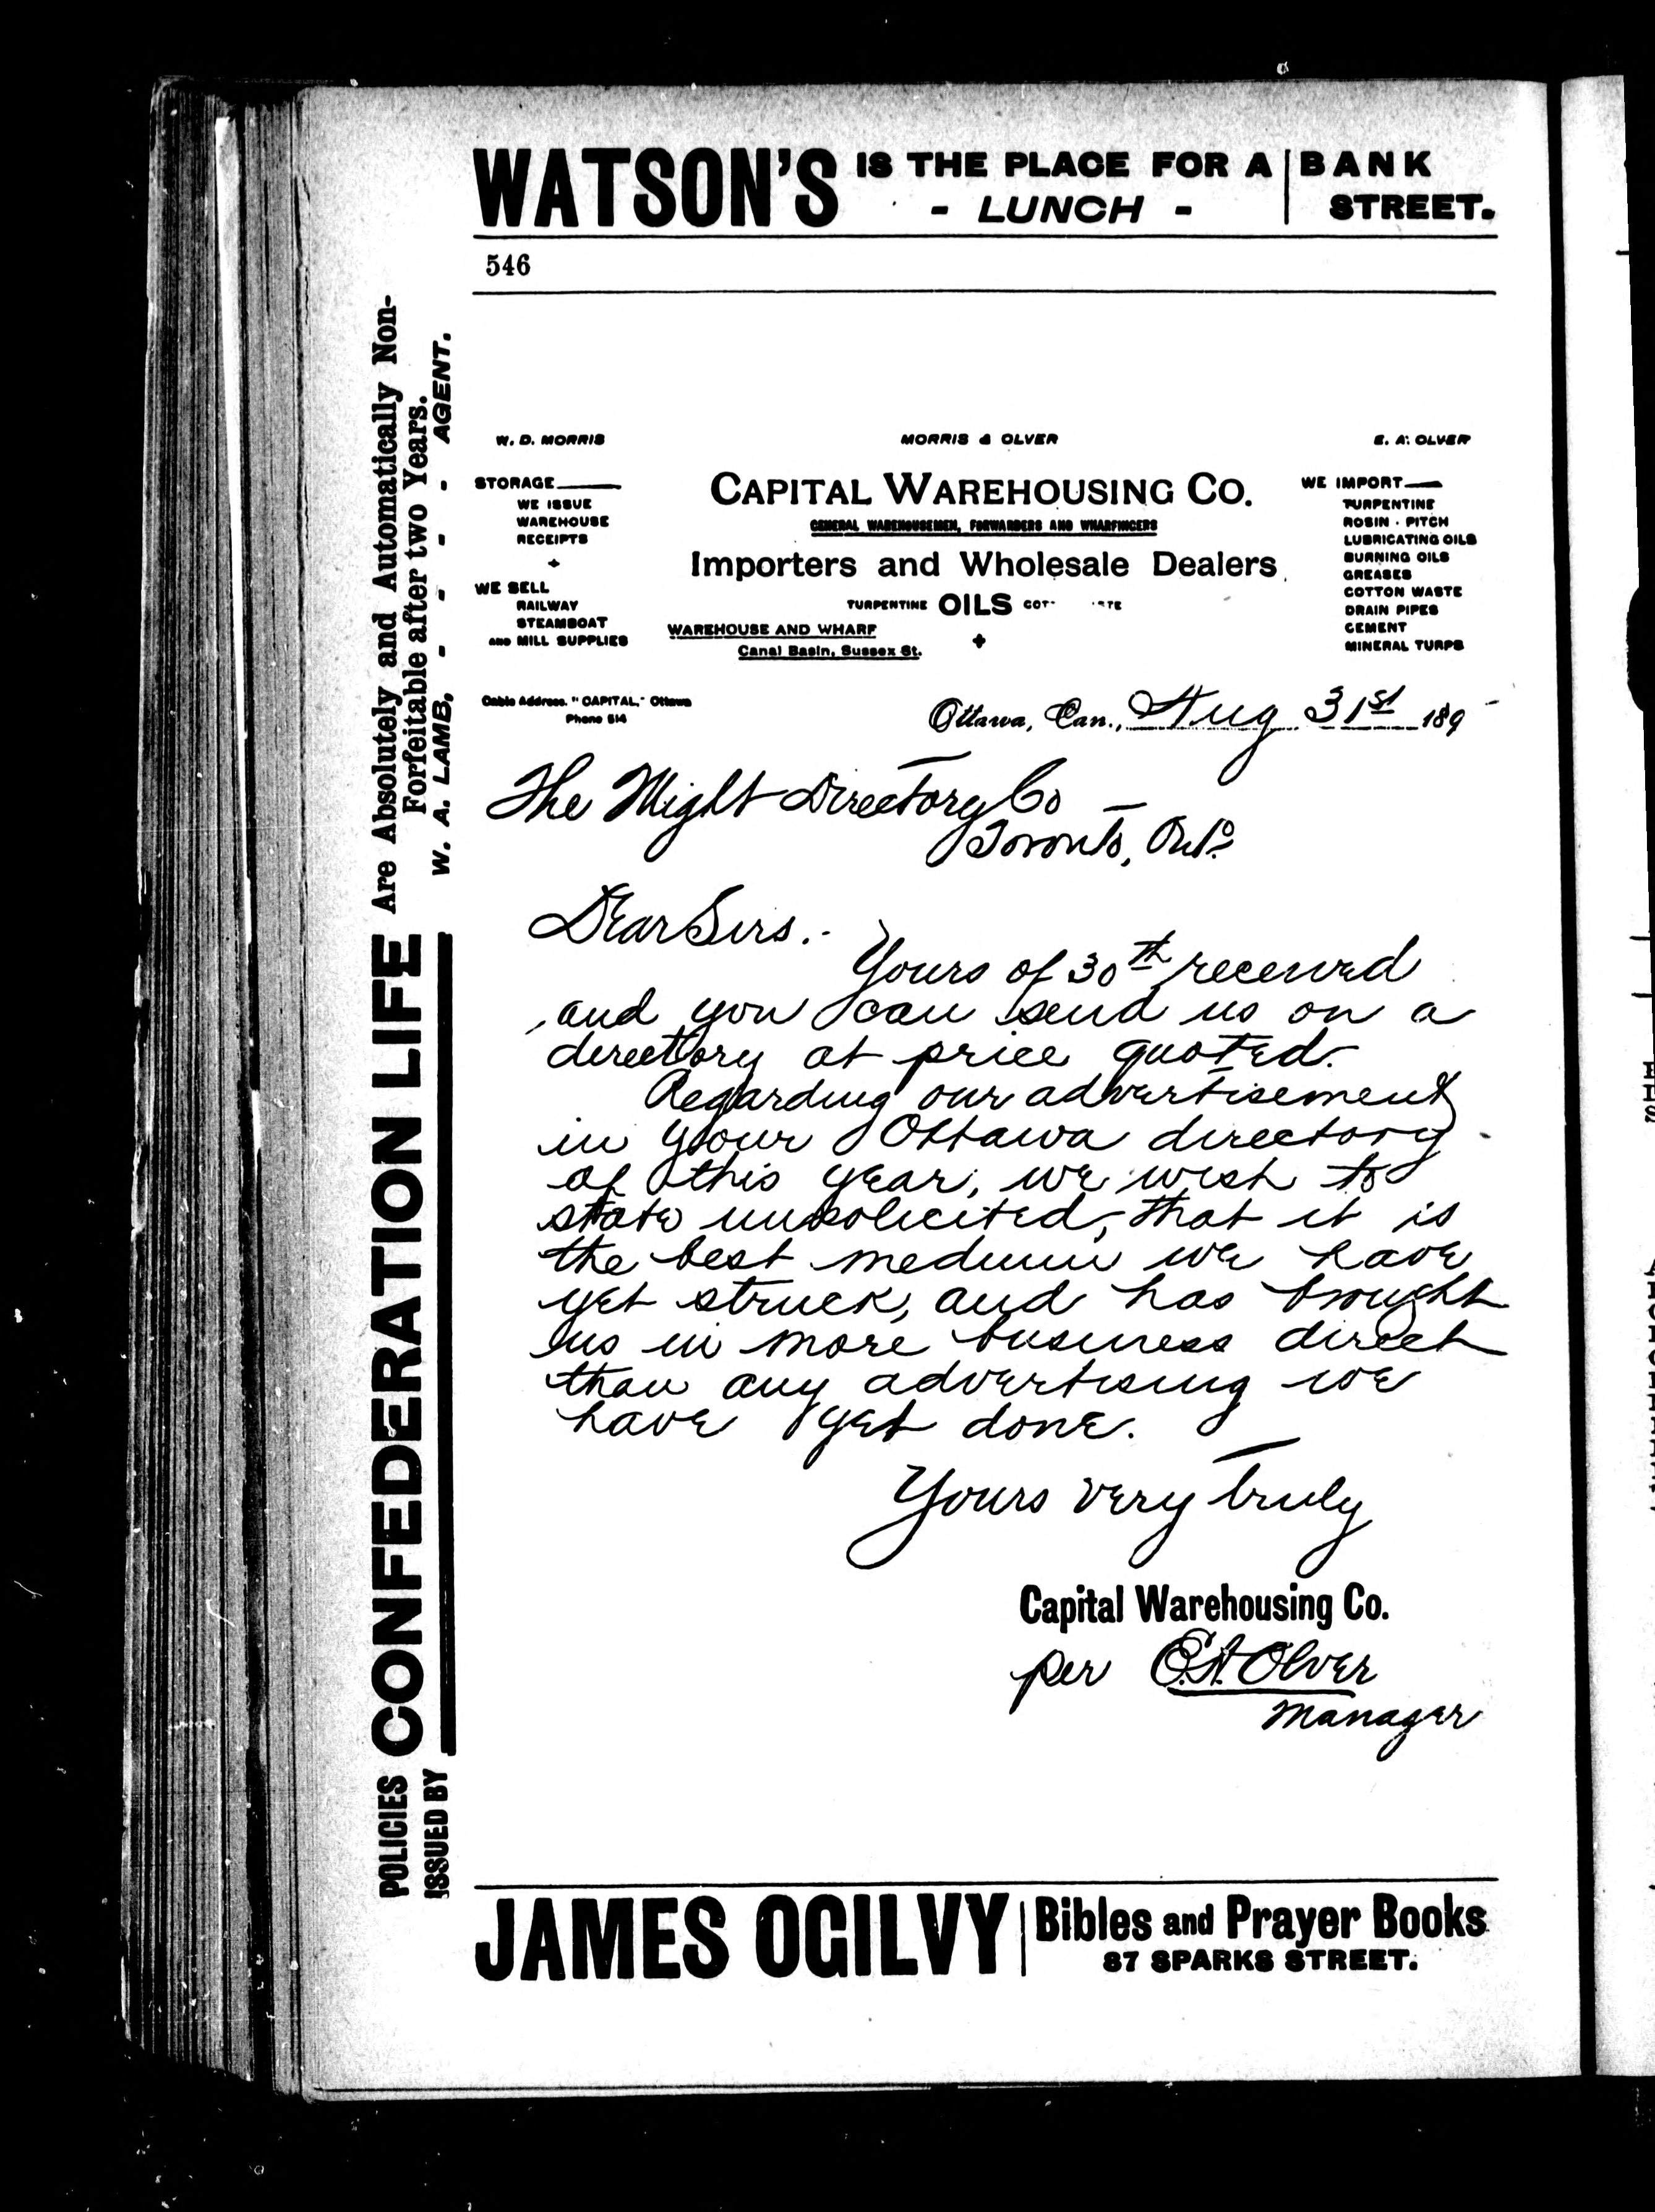 WATSON'S IS THE PLACE FOR A BANK
- LUNCH - STREET.
546
Are Absolutely and Automatically Non-
Forfeitable after two Years.
W. A. LAMB, - - - - AGENT.
POLICIES CONFEDERATION LIFE
ISSUED BY
W. D. MORRIS
MORRIS & OLVER
E. A. OLVER
STORAGE
WE ISSUE
WAREHOUSE
RECEIPTS
WE SELL
RAILWAY
STEAMBOAT
AND MILL SUPPLIES
CAPITAL WAREHOUSING CO.
GENERAL WAREHOUSEMEN, FORWARDERS AND WHARFINGERS
Importers and Wholesale Dealers
TURPENTINE OILS
WAREHOUSE AND WHARF
Canal Basin, Sussex St.
WE IMPORT
TURPENTINE
ROSIN · PITCH
LUBRICATING OILS
BURNING OILS
GREASES
COTTON WASTE
DRAIN PIPES
CEMENT
MINERAL TURPS
Cable Address. "CAPITAL," Ottawa
Phone 514
Ottawa, Can., Aug 31st 189
The Might Directory Co
Toronto, Ont.
Dear Sirs.-
Yours of 30th received
and you can send us on a
directory at price quoted.
Regarding our advertisement
in your Ottawa directory
of this year, we wish to
state unsolicited, that it is
the best medium we have
yet struck, and has brought
us in more business direct
than any advertising we
have yet done.
Yours very truly
Capital Warehousing Co.
per E.A. Olver
Manager
JAMES OGILVY Bibles and Prayer Books
87 SPARKS STREET.